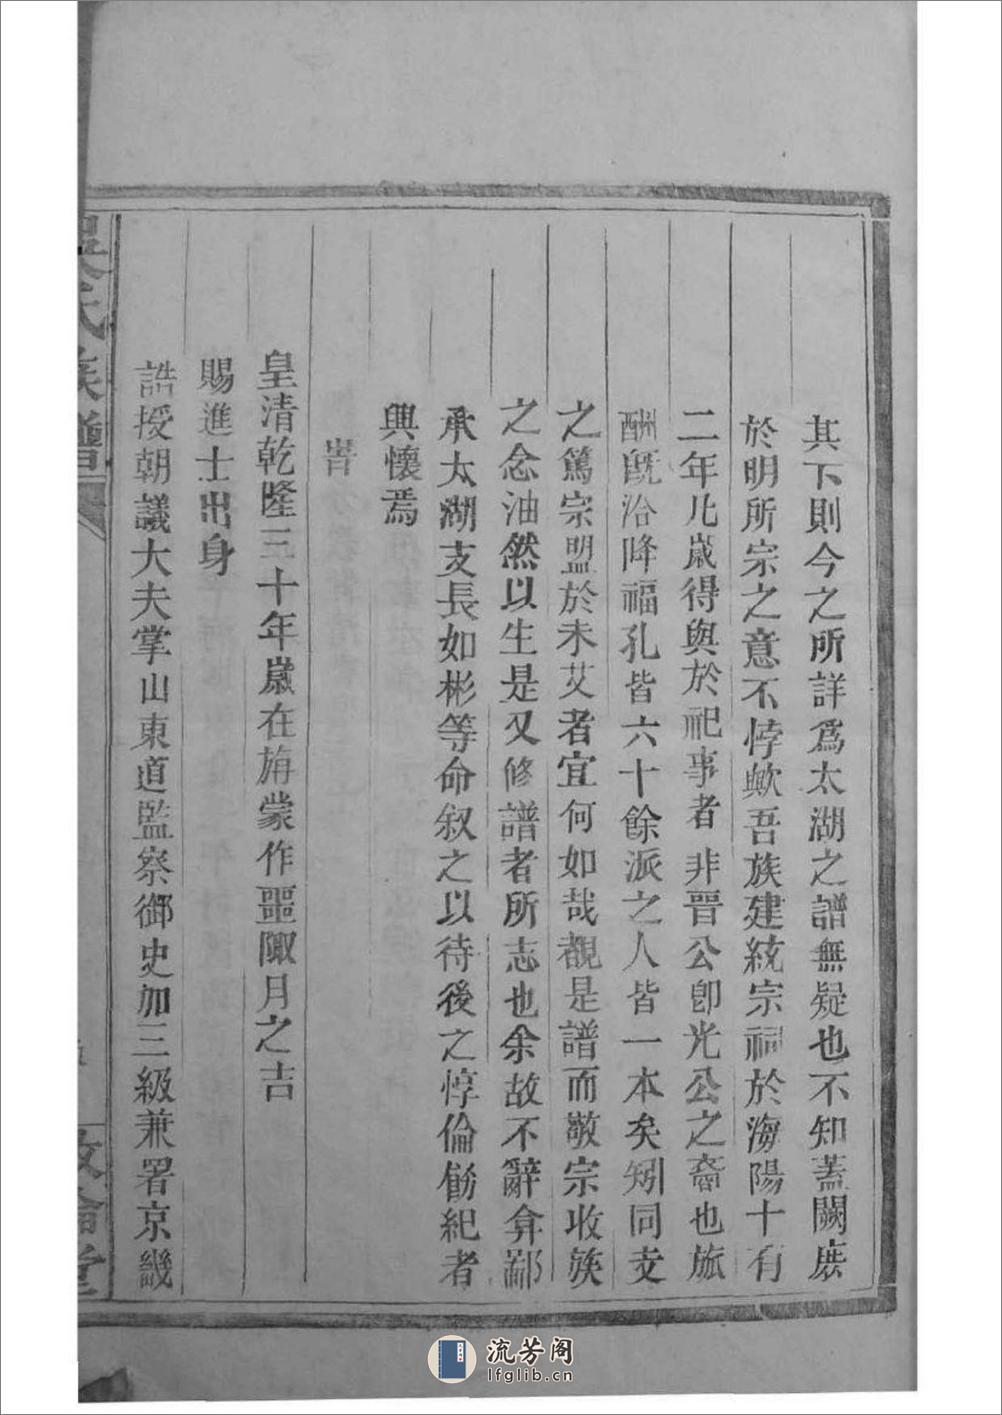 其下則今之所詳爲太湖之譜無疑也不知蓋闕庶
於明所宗之意不悖歟吾族建統宗祠於海陽十有
二年凡歲得與於祀事者非晋公卽光公之裔也旅
酬旣洽降福孔皆六十餘派之人皆一本矣矧同支
之篤宗盟於未艾者宜何如哉覩是譜而敬宗收族
之念油然以生是又修譜者所志也余故不辭弇鄙
承太湖支長如彬等命叙之以待後之惇倫飭紀者
興懷焉
旹
皇清乾隆三十年歲在旃蒙作噩陬月之吉
賜進士出身
誥授朝議大夫掌山東道監察御史加三級兼署京畿
吳氏族譜
敘倫堂
流芳阁
lfglib.cn